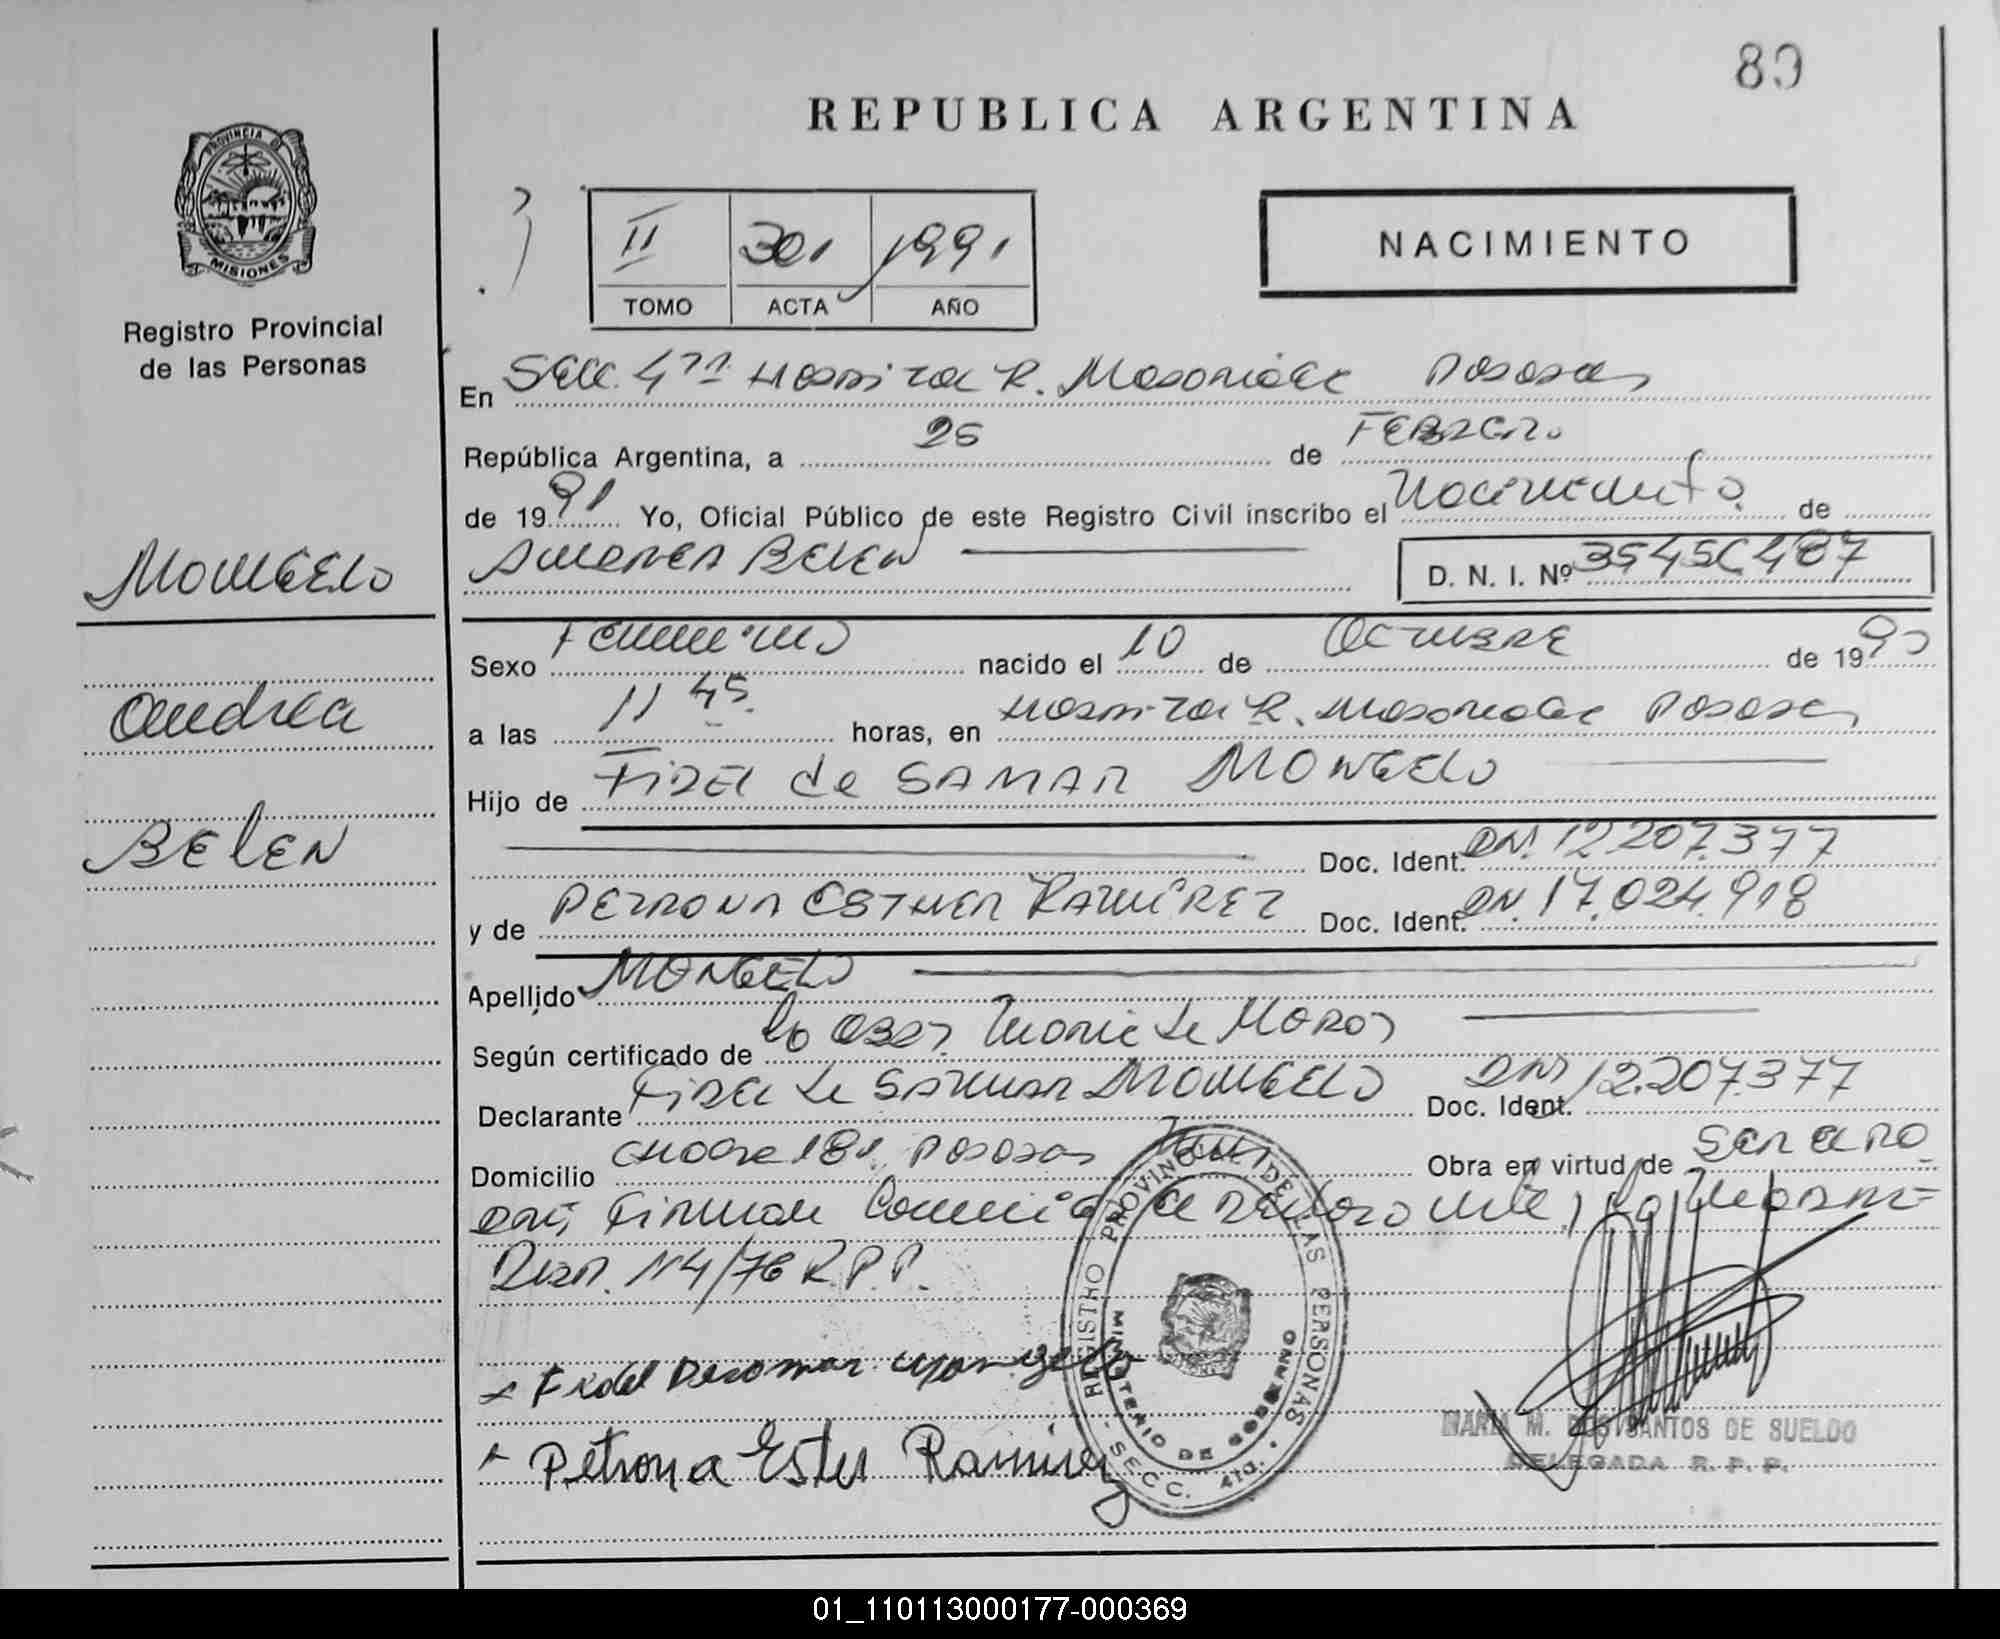 80
REPUBLICA ARGENTINA
PROVINCIA DE
MISIONES
Registro Provincial
de las Personas
II 301 1991
TOMO ACTA AÑO
NACIMIENTO
En Secc. 4ta Hospital R. Madariaga Posadas
República Argentina, a 25 de FEBRERO
de 1991 Yo, Oficial Público de este Registro Civil inscribo el Nacimiento de
ANDREA BELEN
D. N. I. Nº
MONGELO
Andrea
BELEN
Sexo Femenino nacido el 10 de OCTUBRE de 1990
a las 11 45 horas, en Hospital R. Madariaga Posadas
Hijo de FIDEL de SAMAR MONGELO
Doc. Ident. DNI 12.207.377
y de PETRONA ESTHER RAMIREZ Doc. Ident. DNI. 17.024.918
Apellido MONGELO
Según certificado de la Obst.
Declarante FIDEL de SAMAR MONGELO Doc. Ident. DNI 12.207.377
Domicilio 181 Posadas Obra en virtud de Ser el PA
DRE, FIRMAN
Disp. Nº4/76 R.P.P.
Fidel Mongelo
Petrona Ester Ramirez
REGISTRO PROVINCIAL DE LAS PERSONAS - SECC. 4ta.
MINISTERIO DE GOBIERNO
MARIA M. DOS SANTOS DE SUELDO
DELEGADA R. P. P.
01_110113000177-000369